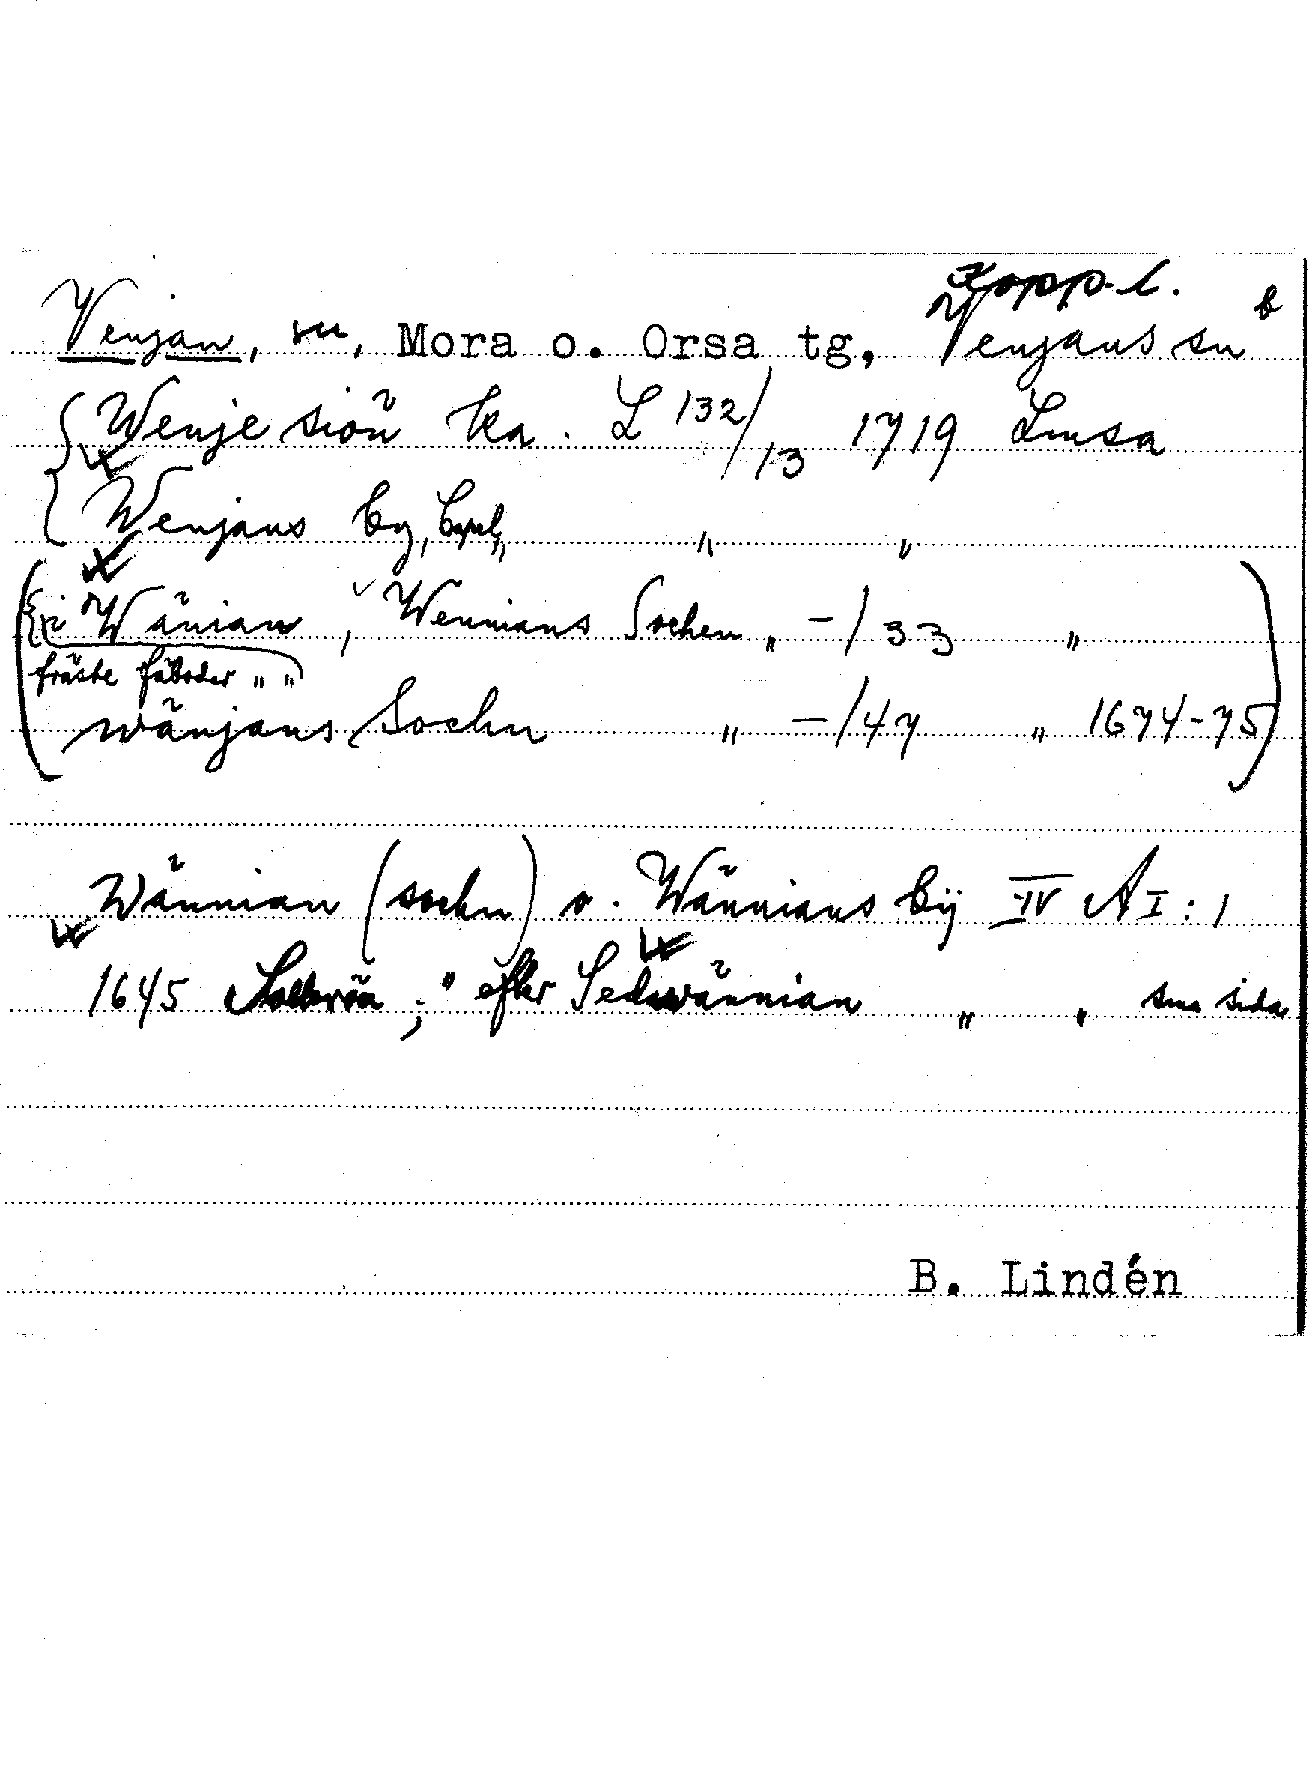 Kopp. l.
Venjan, sn, Mora o. Orsa tg, Venjans sn b
Wenje siöñ ka. L 132/13 1719 Lmsa
Wenjans by, byal, " "
Wänian, Wennians Sochen " -/33 "
fräste fäboder " "
wänjans Sochn " -/47 " 1674-75
Wännian (sochn) o. Wännians bÿ IV A I : 1
1645 ; " efter Sedwännian " " sma sida
B. Lindén